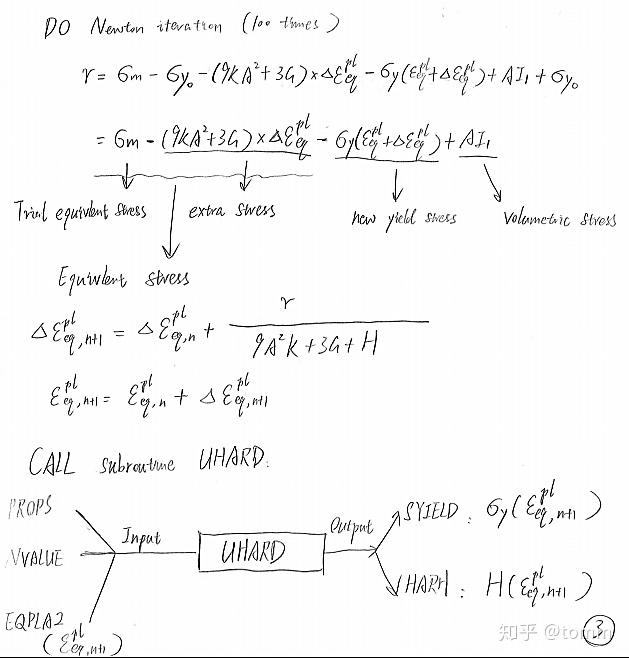 DO Newton iteration (100 times)
r = σm − σy₀ − (9KA² + 3G) × Δε_eq^pl − σy(ε_eq^pl + Δε_eq^pl) + AI₁ + σy₀
= σm − (9KA² + 3G) × Δε_eq^pl − σy(ε_eq^pl + Δε_eq^pl) + AI₁
Trial equivalent stress extra stress new yield stress Volumetric stress
Equivlent stress
Δε_eq,n+1^pl = Δε_eq,n^pl + r / (9A²K + 3G + H)
ε_eq,n+1^pl = ε_eq,n^pl + Δε_eq,n+1^pl
CALL subroutine UHARD.
PROPS
VVALUE Input UHARD Output
SYIELD: σy(ε_eq,n+1^pl)
HARH: H(ε_eq,n+1^pl)
EQPLA2
(ε_eq,n+1^pl)
3
知乎 @tomm